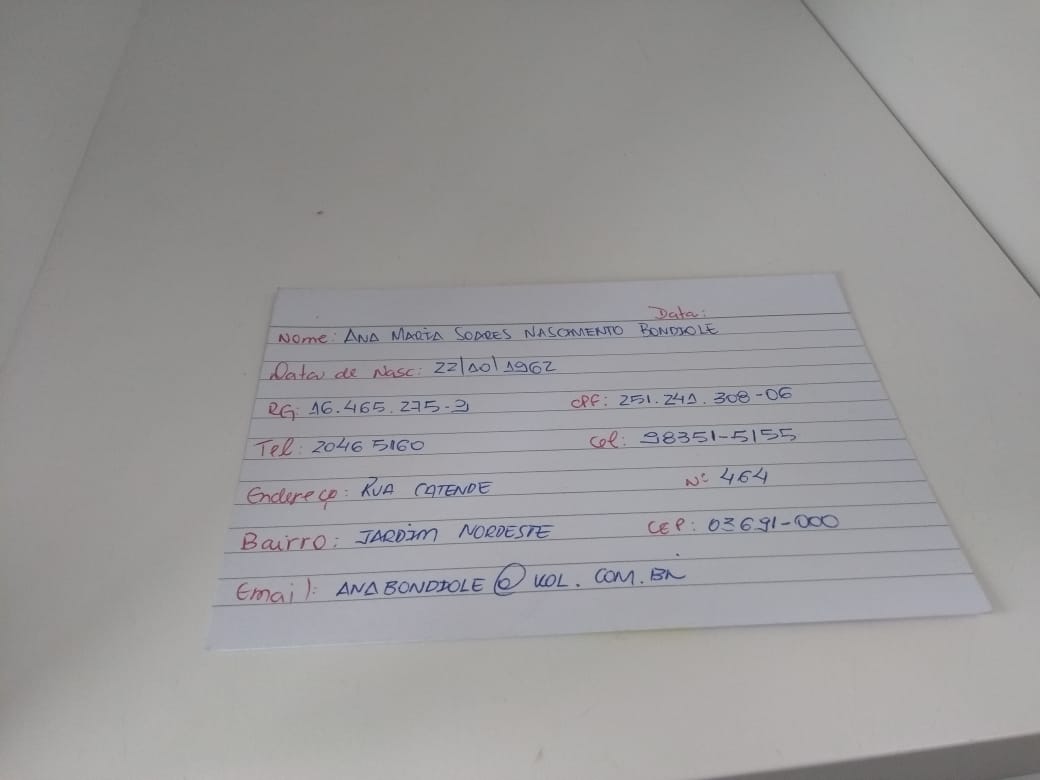 Data:
Nome: ANA MARIA SOARES NASCIMENTO BONDIOLE
Data de Nasc: 22/10/1962
RG: 16.465.275-3 CPF: 251.241.308-06
Tel: 2046 5160 Cel: 98351-5155
Endereço: RUA CATENDE Nº 464
Bairro: JARDIM NORDESTE CEP: 03691-000
Email: ANABONDIOLE@UOL.COM.BR